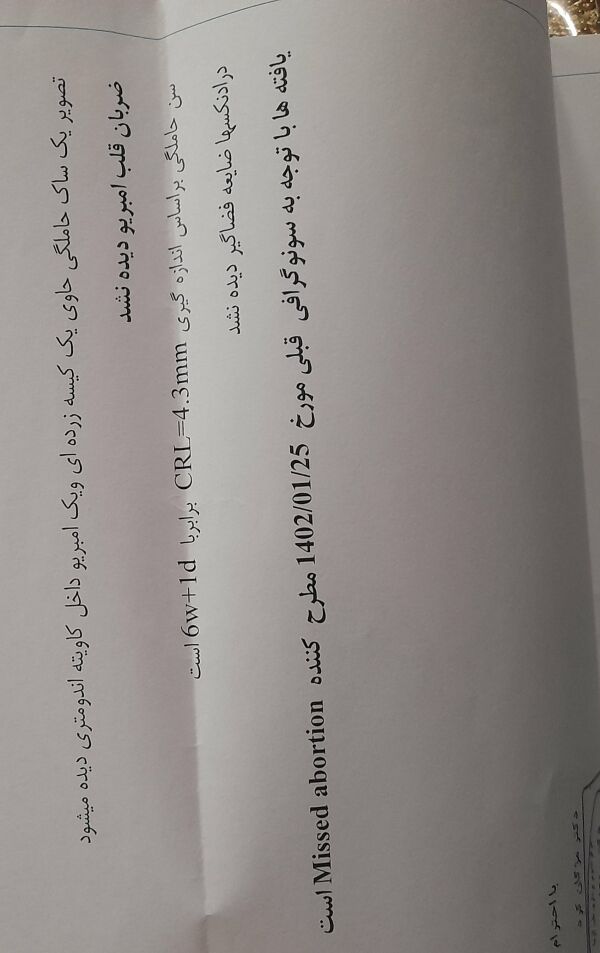 تصویر یک ساک حاملگی حاوی یک کیسه زرده ای ویک امبریو داخل کاویته اندومتری دیده میشود
ضربان قلب امبریو دیده نشد
سن حاملگی براساس اندازه گیری CRL=4.3mm برابربا 6w+1d است
درادنکسها ضایعه فضاگیر دیده نشد
یافته ها با توجه به سونوگرافی قبلی مورخ 1402/01/25 مطرح کننده Missed abortion است
با احترام
دکتر